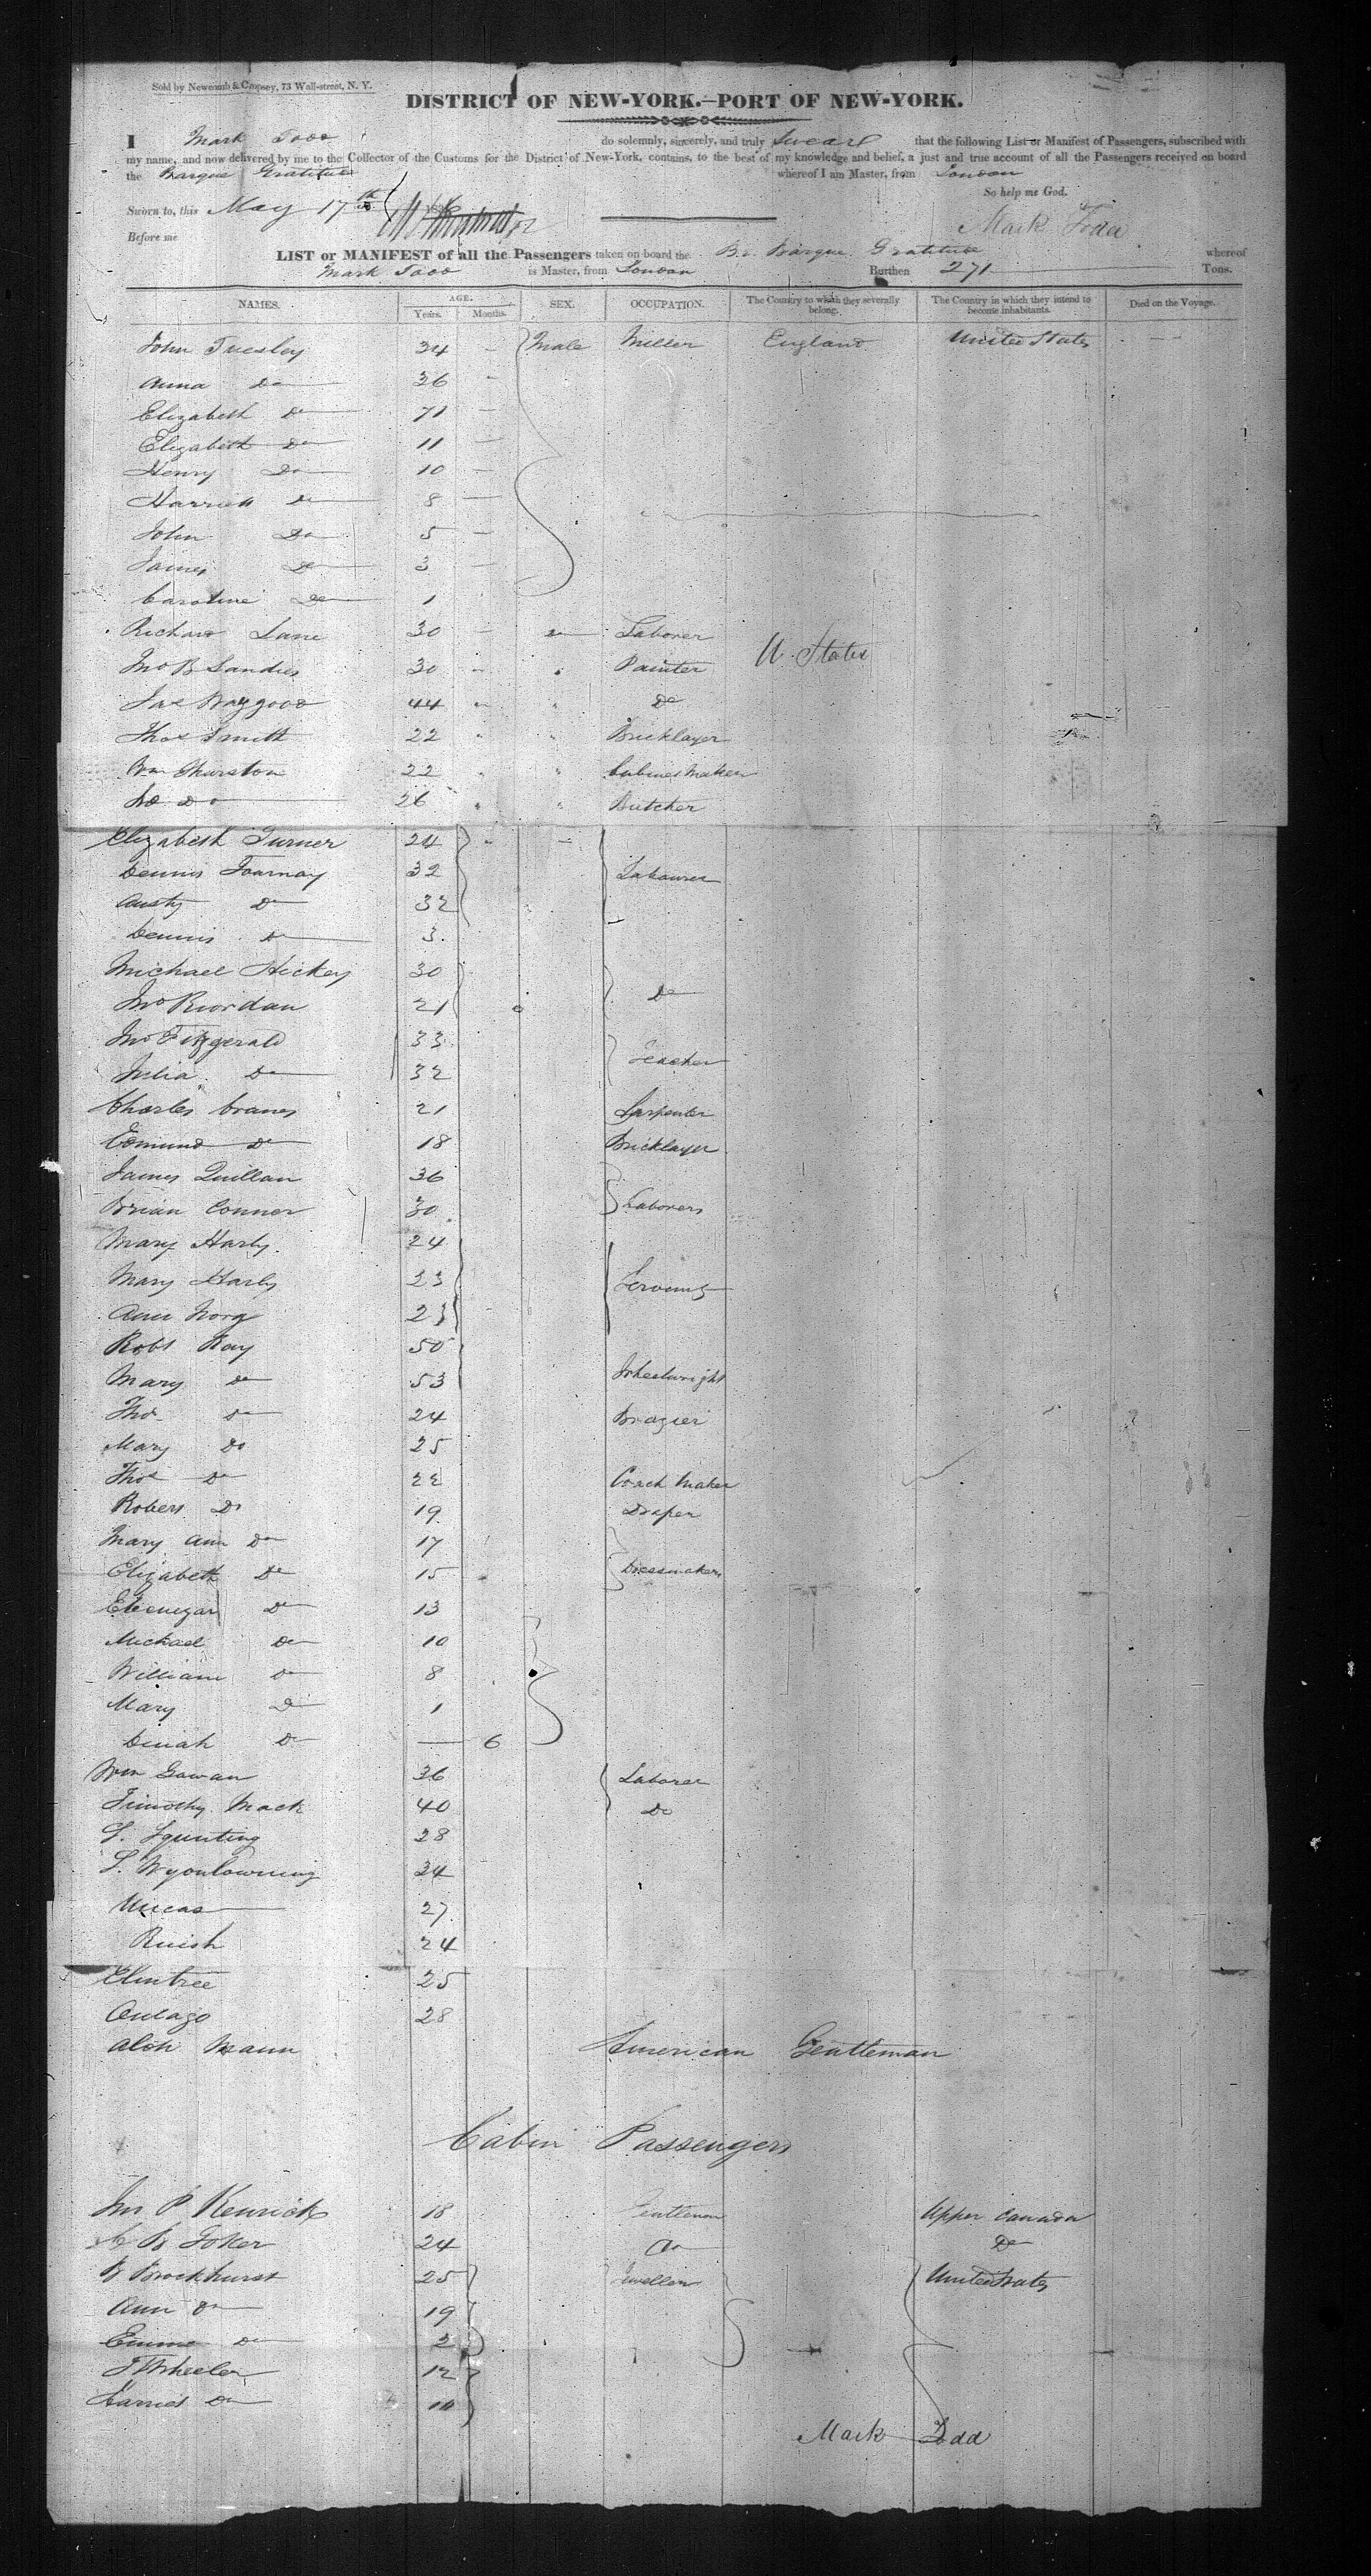 Sold by Newcomb & Cropsey, 73 Wall-street, N. Y.
DISTRICT OF NEW-YORK.—PORT OF NEW-YORK.
I Mark Todd do solemnly, sincerely, and truly Swear that the following List or Manifest of Passengers, subscribed with
my name, and now delivered by me to the Collector of the Customs for the District of New-York, contains, to the best of my knowledge and belief, a just and true account of all the Passengers received on board
the Barque Gratitude whereof I am Master, from London
So help me God.
Sworn to, this May 17th
Mark Todd
Before me
LIST or MANIFEST of all the Passengers taken on board the Br. Barque Gratitude whereof
Mark Todd is Master, from London Burthen 271 Tons.
NAMES. AGE. SEX. OCCUPATION. The Country to which they severally belong. The Country in which they intend to become inhabitants. Died on the Voyage.
Years. Months.
John Tuesley 34 Male Miller England United States
Anna Do 36
Elizabeth Do 71
Elizabeth Do 11
Henry Do 10
Harriett Do 8
John Do 5
James Do 3
Caroline Do 1
Richard Lane 30 Do Laborer
U. States
Jno B Landies 30 Painter
Jas Haygood 44 Do
Thos Smith 22 Bricklayer
Wm Thurston 22 Cabinet Maker
Do Do 26 Butcher
Elizabeth Turner 24
Dennis Tournay 32 Labourer
Austy Do 32
Dennis Do 3
Michael Hickey 30
Jno Riordan 21 Do
Jno Fitzgerald 33
Julia Do 32 Teacher
Charles Cranes 21 Carpenter
Edmund Do 18 Bricklayer
James Quillan 36
Brian Conner 30 Laborers
Mary Harly 24
Mary Harly 23 Servants
Ann Norg 23
Robt Ray 50
Mary Do 53 Wheelwright
Thos Do 24 Brazier
Mary Do 25
Thos Do 22 Coach Maker
Robert Do 19 Draper
Mary Ann Do 17
Elizabeth Do 15 Dressmakers
Ebenezar Do 13
Michael Do 10
William Do 8
Mary Do 1
Dinah Do — 6
Wm Gowan 36 Laborer
Timothy Mack 40 Do
S. 28
S. 34
Uncas 27
Ruish 24
Elmtree 25
28
Mann American Gentleman
Cabin Passengers
Jno P Kenrick 18 Gentleman Upper Canada
C B Toker 24 Do Do
B Brockhurst 25 Jeweller United States
Ann Do 19
Emma Do 2
J Wheeler 12
Harriet Do 10
Mark Todd